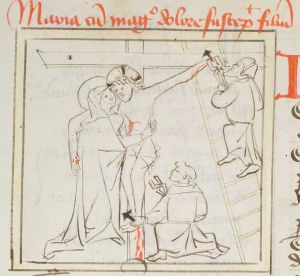 Maria cū mag° dolore suscep̄t filiū